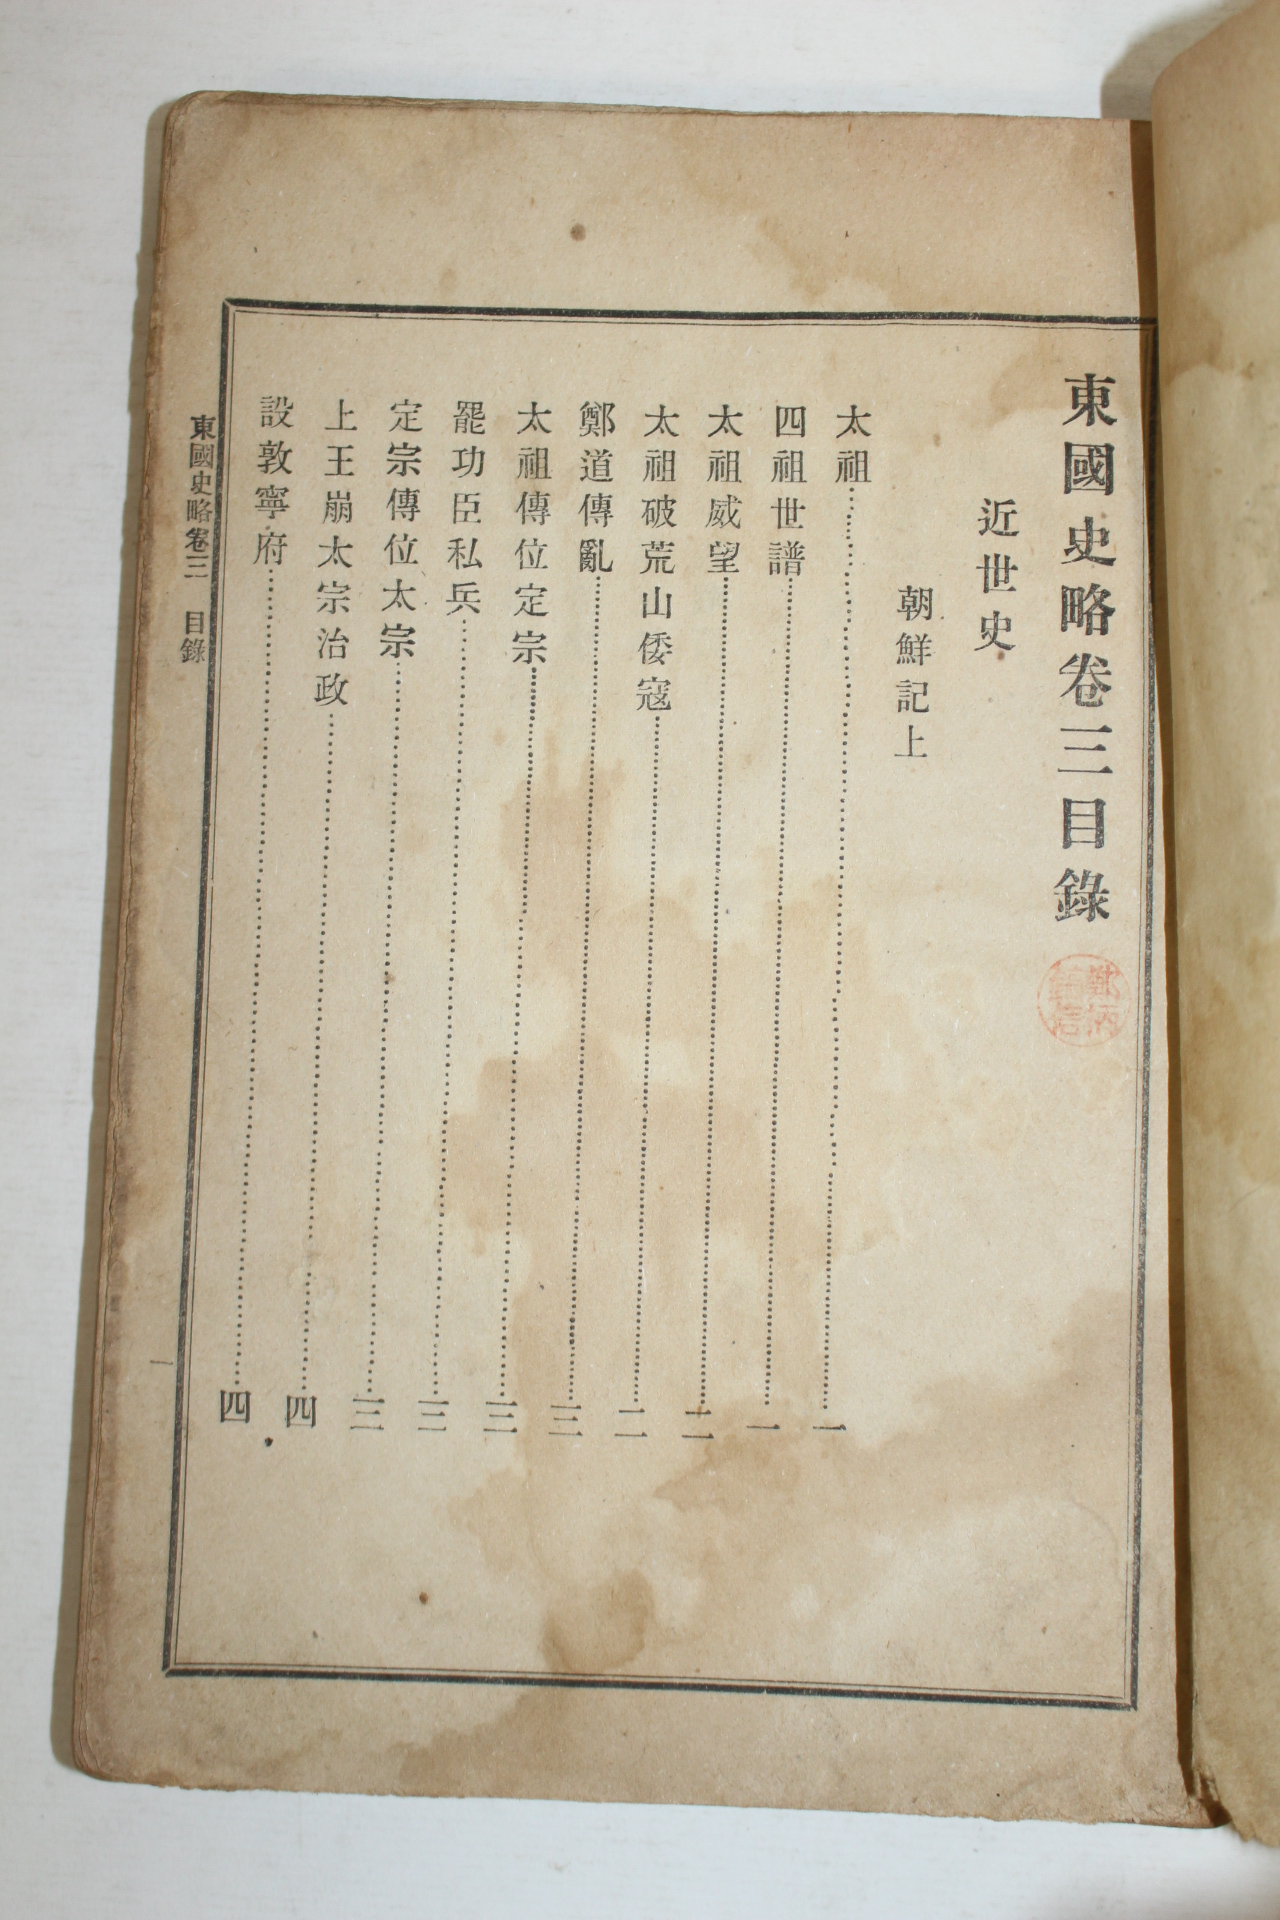 東國史略卷三目錄
近世史
朝鮮記上
太祖……一
四祖世譜……一
太祖威望……二
太祖破荒山倭寇……二
鄭道傳亂……三
太祖傳位定宗……三
罷功臣私兵……三
定宗傳位太宗……三
上王崩太宗治政……四
設敦寧府……四
東國史略卷三 目錄
一